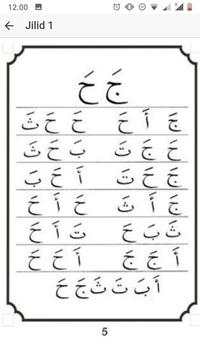 12.00
Jilid 1
جَ حَ
جَ أَ حَ حَ حَ ثَ
حَ جَ تَ بَ حَ ثَ
حَ جَ تَ أَ حَ بَ
جَ أَ ثَ حَ أَ حَ
ثَ بَ حَ تَ أَ حَ
أَ جَ جَ أَ حَ حَ
أَ بَ تَ ثَ جَ حَ
5